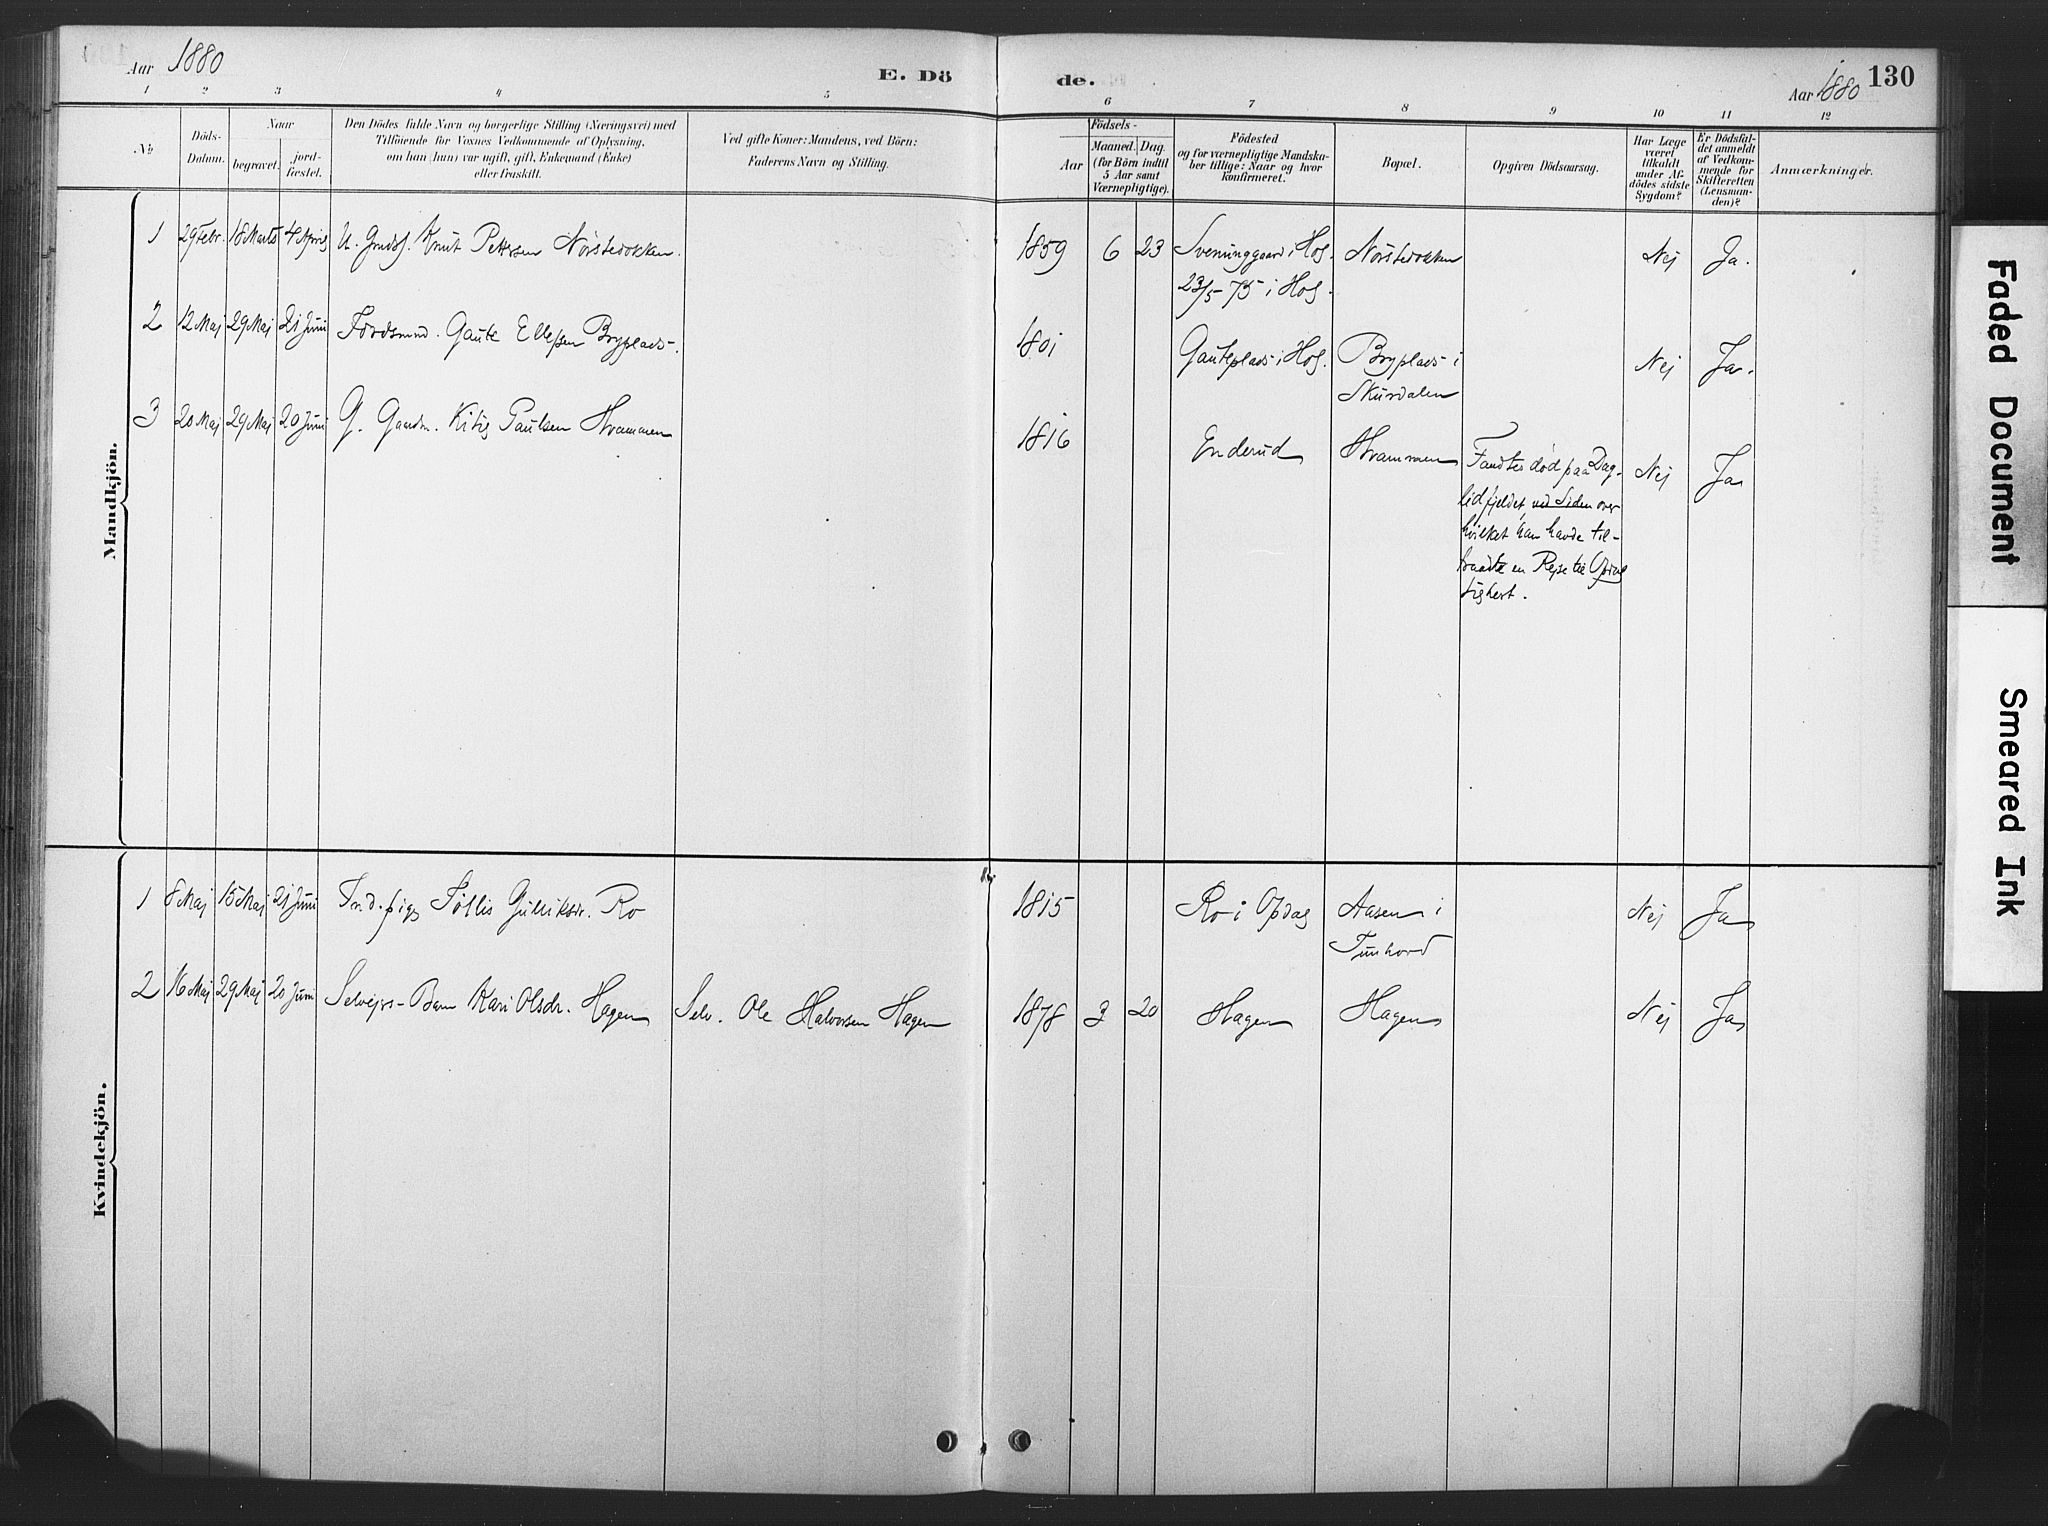 Aar 1880
E. Dö
de.
Aar 1880
130
1 2 3 4 5 6 7 8 9 10 11 12
No
Döds-
Datum.
Naar
begravet.
jord-
fæstet.
Den Dödes fulde Navn og borgerlige Stilling (Næringsvei) med
Tilföiende for Voxnes Vedkommende af Oplysning,
om han (hun) var ugift, gift, Enkemand (Enke)
eller fraskilt.
Ved gifte Koner: Mandens, ved Börn:
Faderens Navn og Stilling.
Födsels-
Aar
Maaned. Dag.
(for Börn indtil
5 Aar samt
Værnepligtige).
Födested
og for værnepligtige Mandska-
ber tillige: Naar og hvor
konfirmeret.
Bopæl.
Opgiven Dödsaarsag.
Har Læge
været
tilkaldt
under Af-
dödes sidste
Sygdom?
Er Dödsfal-
det anmeldt
af Vedkom-
mende for
Skifteretten
(Lensman-
den)?
Anmærkninger.
Mandkjön.
1 29 Febr. 18 Marts 4 April U. Knut Pettersen Nørstedokken. 1859 6 23 Sveninggaard i Hol. Nørstedokken Nej Ja.
23/5 75 i Hol.
2 12 Maj 29 Maj 21 Juni Gaute Ellefsen Bryplads. 1801 Gauteplads i Hol. Bryplads i Nej Ja.
Skurdalen
3 20 Maj 29 Maj 20 Juni G. Gaardm. Kitil Paulsen Hvammen 1816 Enderud Hvammen Fandtes død paa Dag- Nej Ja
lidfjeldet, ved Siden over
hvilket han havde til-
traadt en Rejse til Opdal
Kvindekjön.
1 8 Maj 15 Maj 21 Juni Ind. pige Gulliksdr. Ro 1815 Ro i Opdal Aasen i Nej Ja
Tunhovd
2 16 Maj 29 Maj 20 Juni Selvejers-Barn Kari Olsdr. Hagen Selv. Ole Halvorsen Hagen 1878 3 20 Hagen Hagen Nej Ja
Faded Document
Smeared Ink